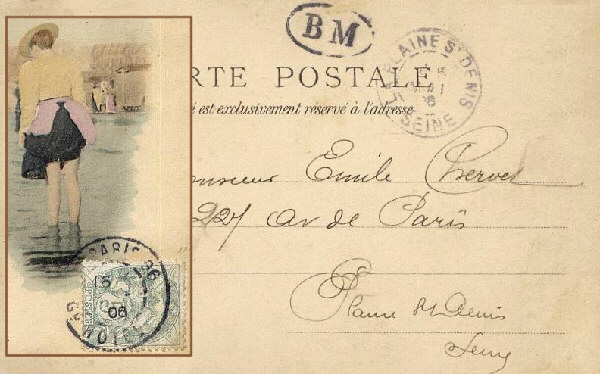 BM
RTE POSTALE
é est exclusivement réservé à l'adresse
LAINE ST DENIS
SEINE
onsieur Emile Chervet
227 av de Paris
Plaine St Denis
Seine
PARIS
06